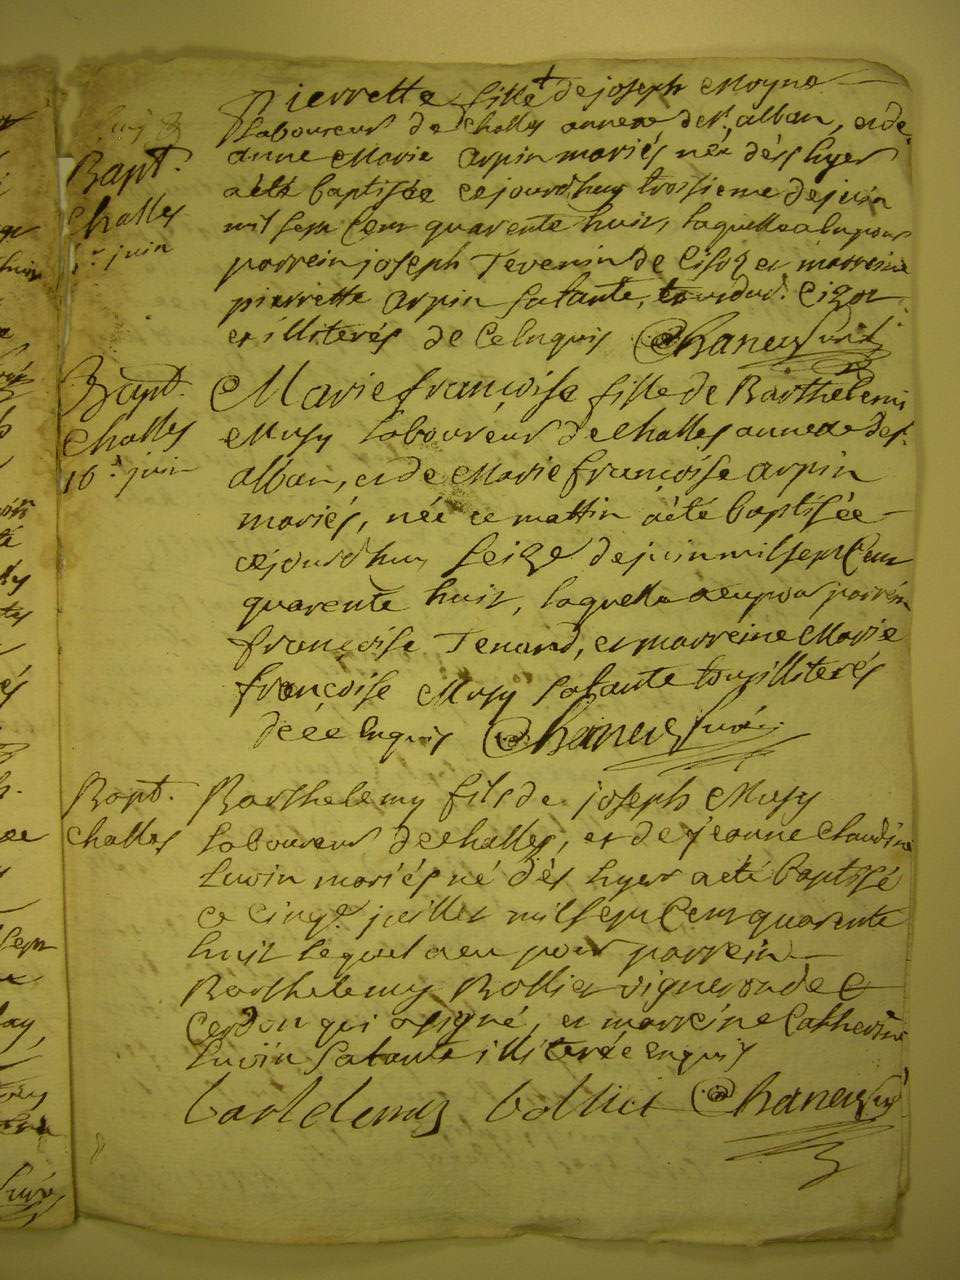 Bapt.
Challes
juin
Pierrette fille de joseph Moyne
laboureur de challes annexe de st. alban, et de
anne Marie arpin mariés née dès hyer
a èté baptisée cejourdhuy troisieme de juin
mil sept cent quarente huit, laquelle a eu pour
parrein joseph Tevenin de Cisod et marreine
pierrette arpin sa tante, tous dud. Cizod
et illiterés de ce enquis Chaney curé
Bapt.
Challes
16e juin
Marie françoise fille de Barthelemi
Musy laboureur de Challes annexe de st.
alban, et de Marie françoise arpin
mariés, née ce mattin a èté baptisée
cejourdhuy seize de juin mil sept Cent
quarente huit, laquelle a eu pour parrein
françoise Tenand, et marreine Marie
françoise Musy sa tante tous illiterés
de ce enquis Chaney curé
Bapt.
Challes
Barthelemy fils de joseph Musy
laboureur de challes, et de jeanne Claudine
Livoin mariés né dès hyer a èté baptisé
ce cinqe. juillet mil sept Cent quarente
huit lequel a eu pour parrein
Barthelemy Bollier vigneron de
Cerdon qui a signé, et marreine Catherine
Livoin sa tante illiterée enquis
bartelemy bollier Chaney curé